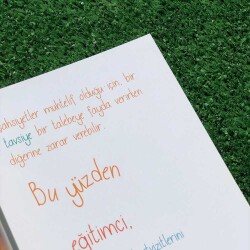 şahsiyetler muhtelif olduğu için bir
tavsiye bir talebeye fayda verirken
diğerine zarar verebilir.
Bu yüzden
eğitimci,